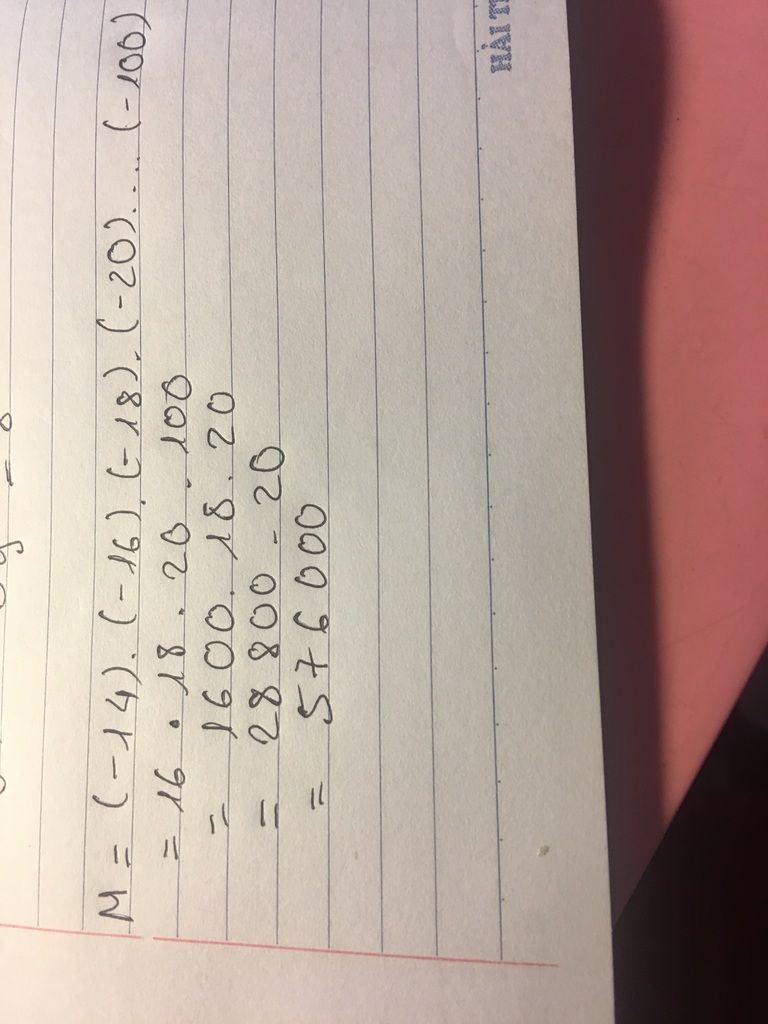 M = (-14).(-16).(-18).(-20)....(-100)
= 16 . 18 . 20 . 100
= 1600 . 18 . 20
= 28 800 . 20
= 576 000